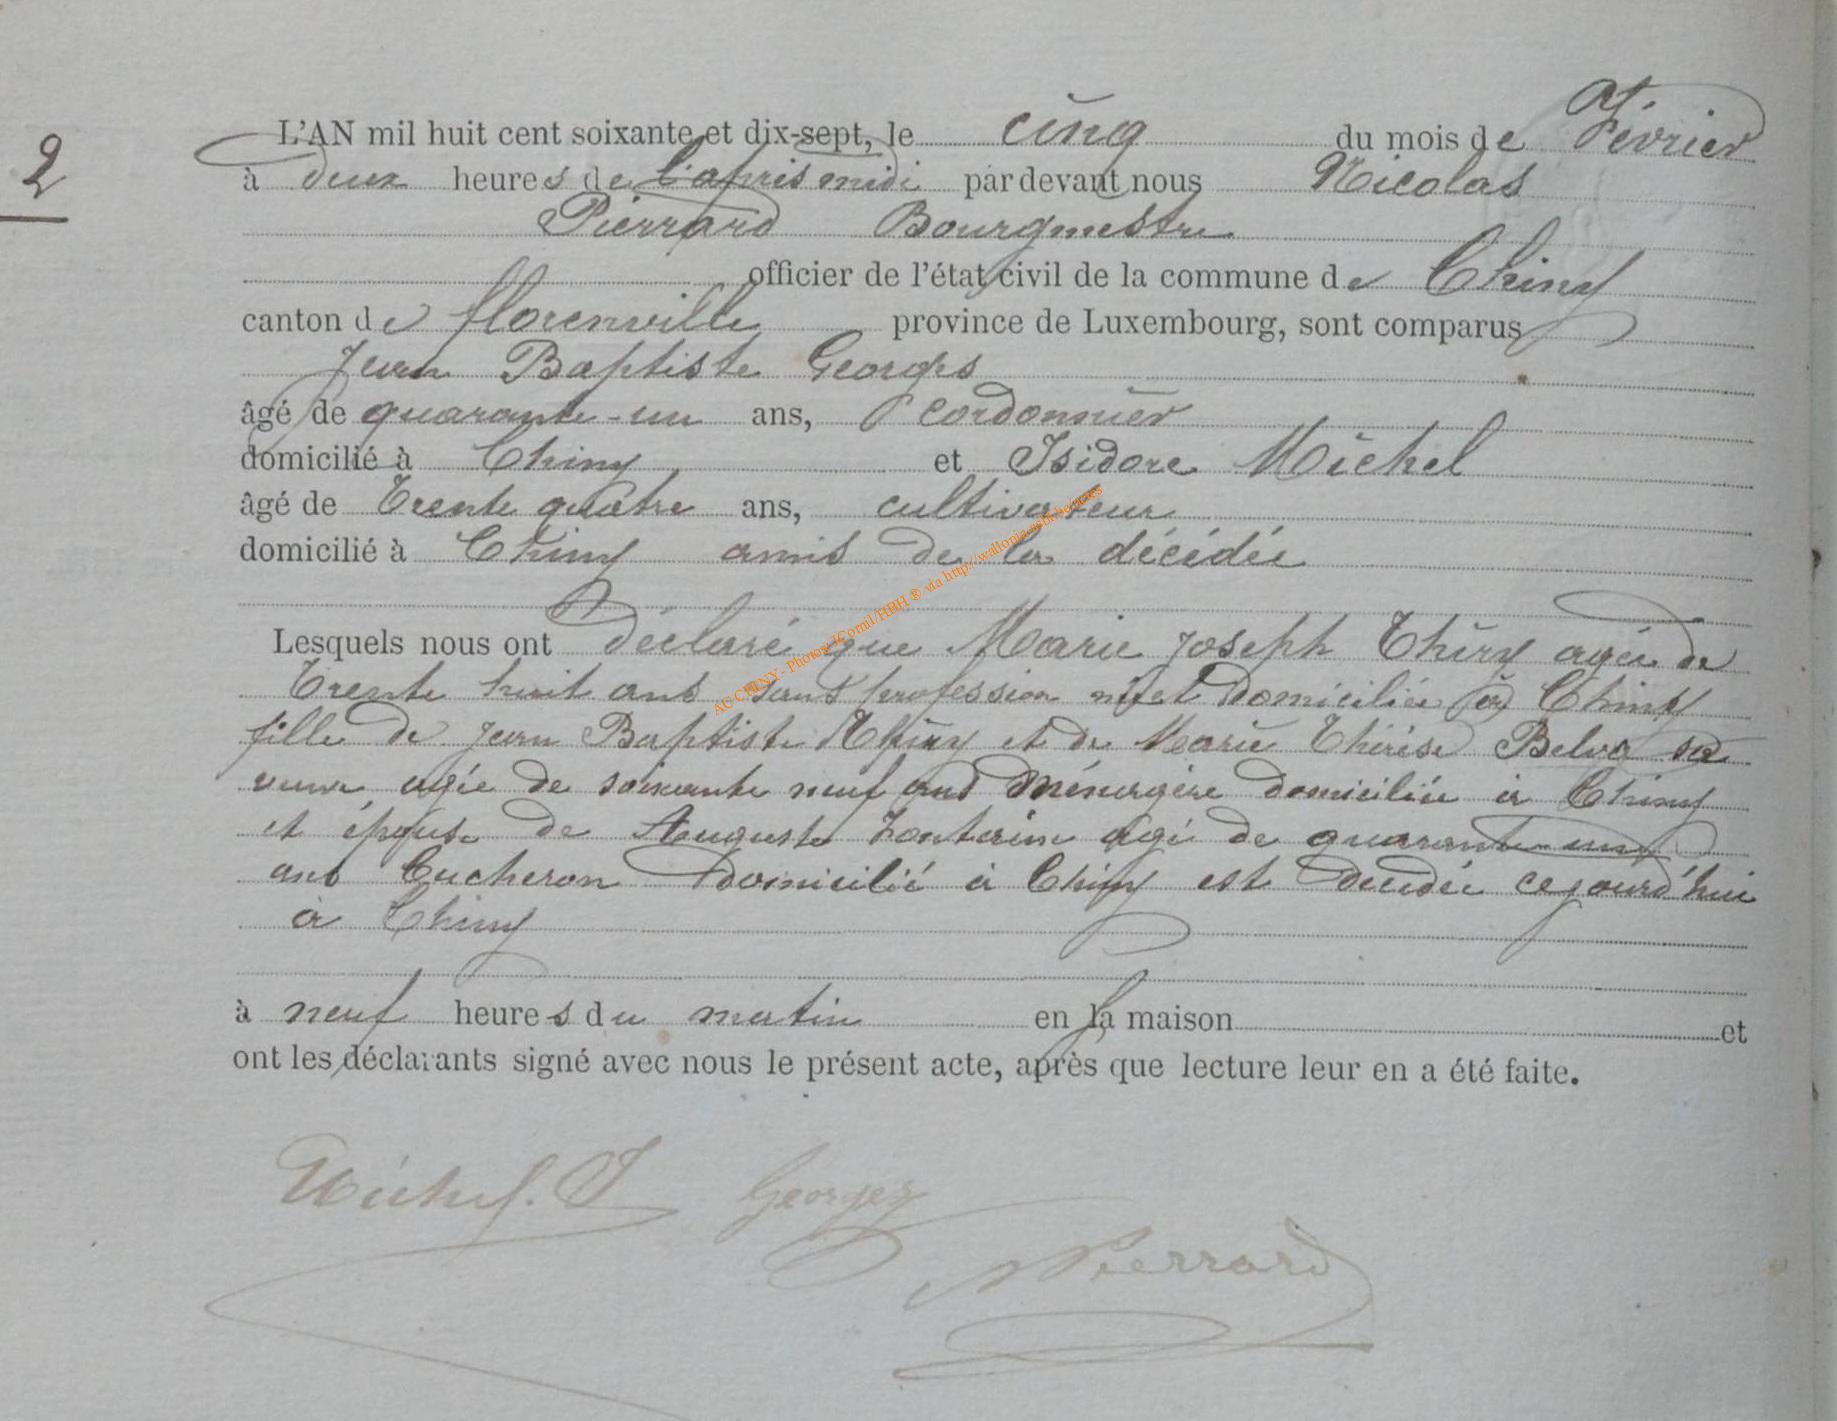 2
L'AN mil huit cent soixante et dix-sept, le cinq du mois de Février
à deux heures de l'après midi pardevant nous Nicolas
Pierrard Bourgmestre
officier de l'état civil de la commune de Chiny
canton de florenville province de Luxembourg, sont comparus
Jean Baptiste Georges
âgé de quarante-un ans, cordonnier
domicilié à Chiny et Isidore Michel
âgé de Trente quatre ans, cultivateur
domicilié à Chiny amis de la décédée
Lesquels nous ont déclaré que Marie Joseph Thiry agée de
Trente huit ans sans profession née et domiciliée à Chiny
fille de Jean Baptiste Thiry et de Marie Thérèse Belva sa
veuve agée de soixante neuf ans ménagère domiciliée à Chiny
et épouse de Auguste Fontaine agé de quarante un
ans Bucheron domicilié à Chiny est décédée cejourd'hui
à Chiny
à neuf heures du matin en la maison et
ont les déclarants signé avec nous le présent acte, après que lecture leur en a été faite.
Michel. I Georges
N Pierrard
AC CHINY - Photos: JComil/HBH ® via http://wallonia-asbl.be/actes